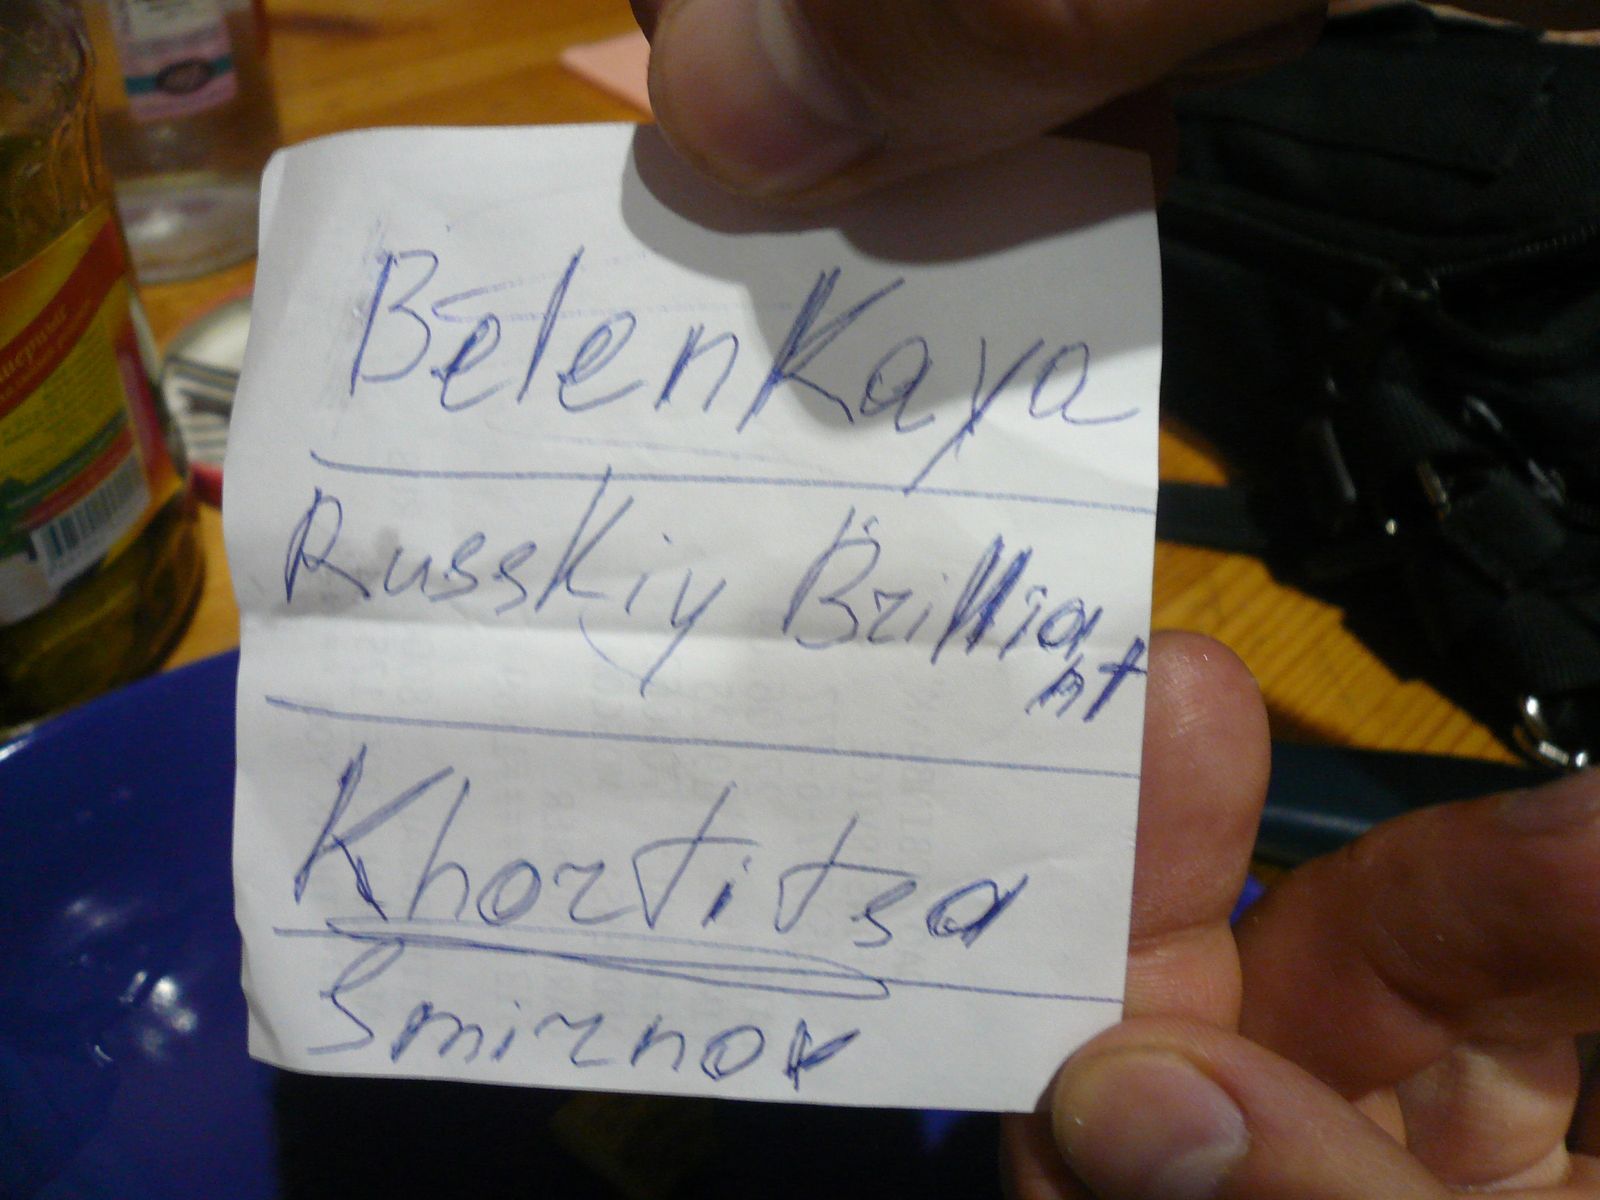 Belenkaya
Russkiy Brillia
nt
Khortitsa
Smirnov